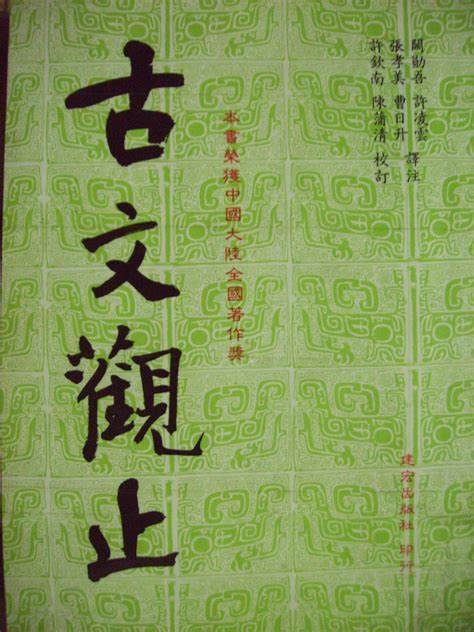 關勛吾 許凌雲 譯注
張孝美 曹日升
許欽南 陳蒲清 校訂
本書榮獲中國大陸全國著作獎
古文觀止
建宏出版社 印行